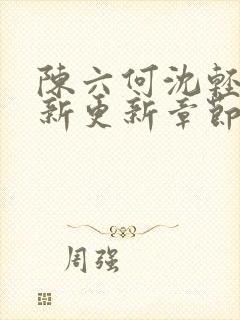 陳六何沈輕
新更新章節
周强